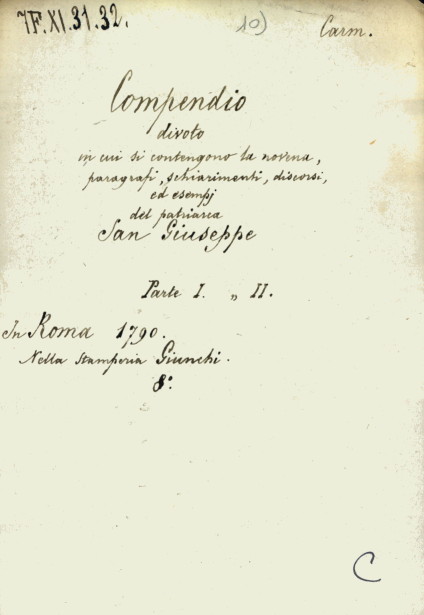 7F.XI.31.32.
10)
Carm.
Compendio
divoto
in cui si contengono la novena,
paragrafi, schiarimenti, discorsi,
ed esempj
del patriarca
San Giuseppe
Parte I. „ II.
In Roma 1790.
Nella Stamperia Giunchi.
8º.
C